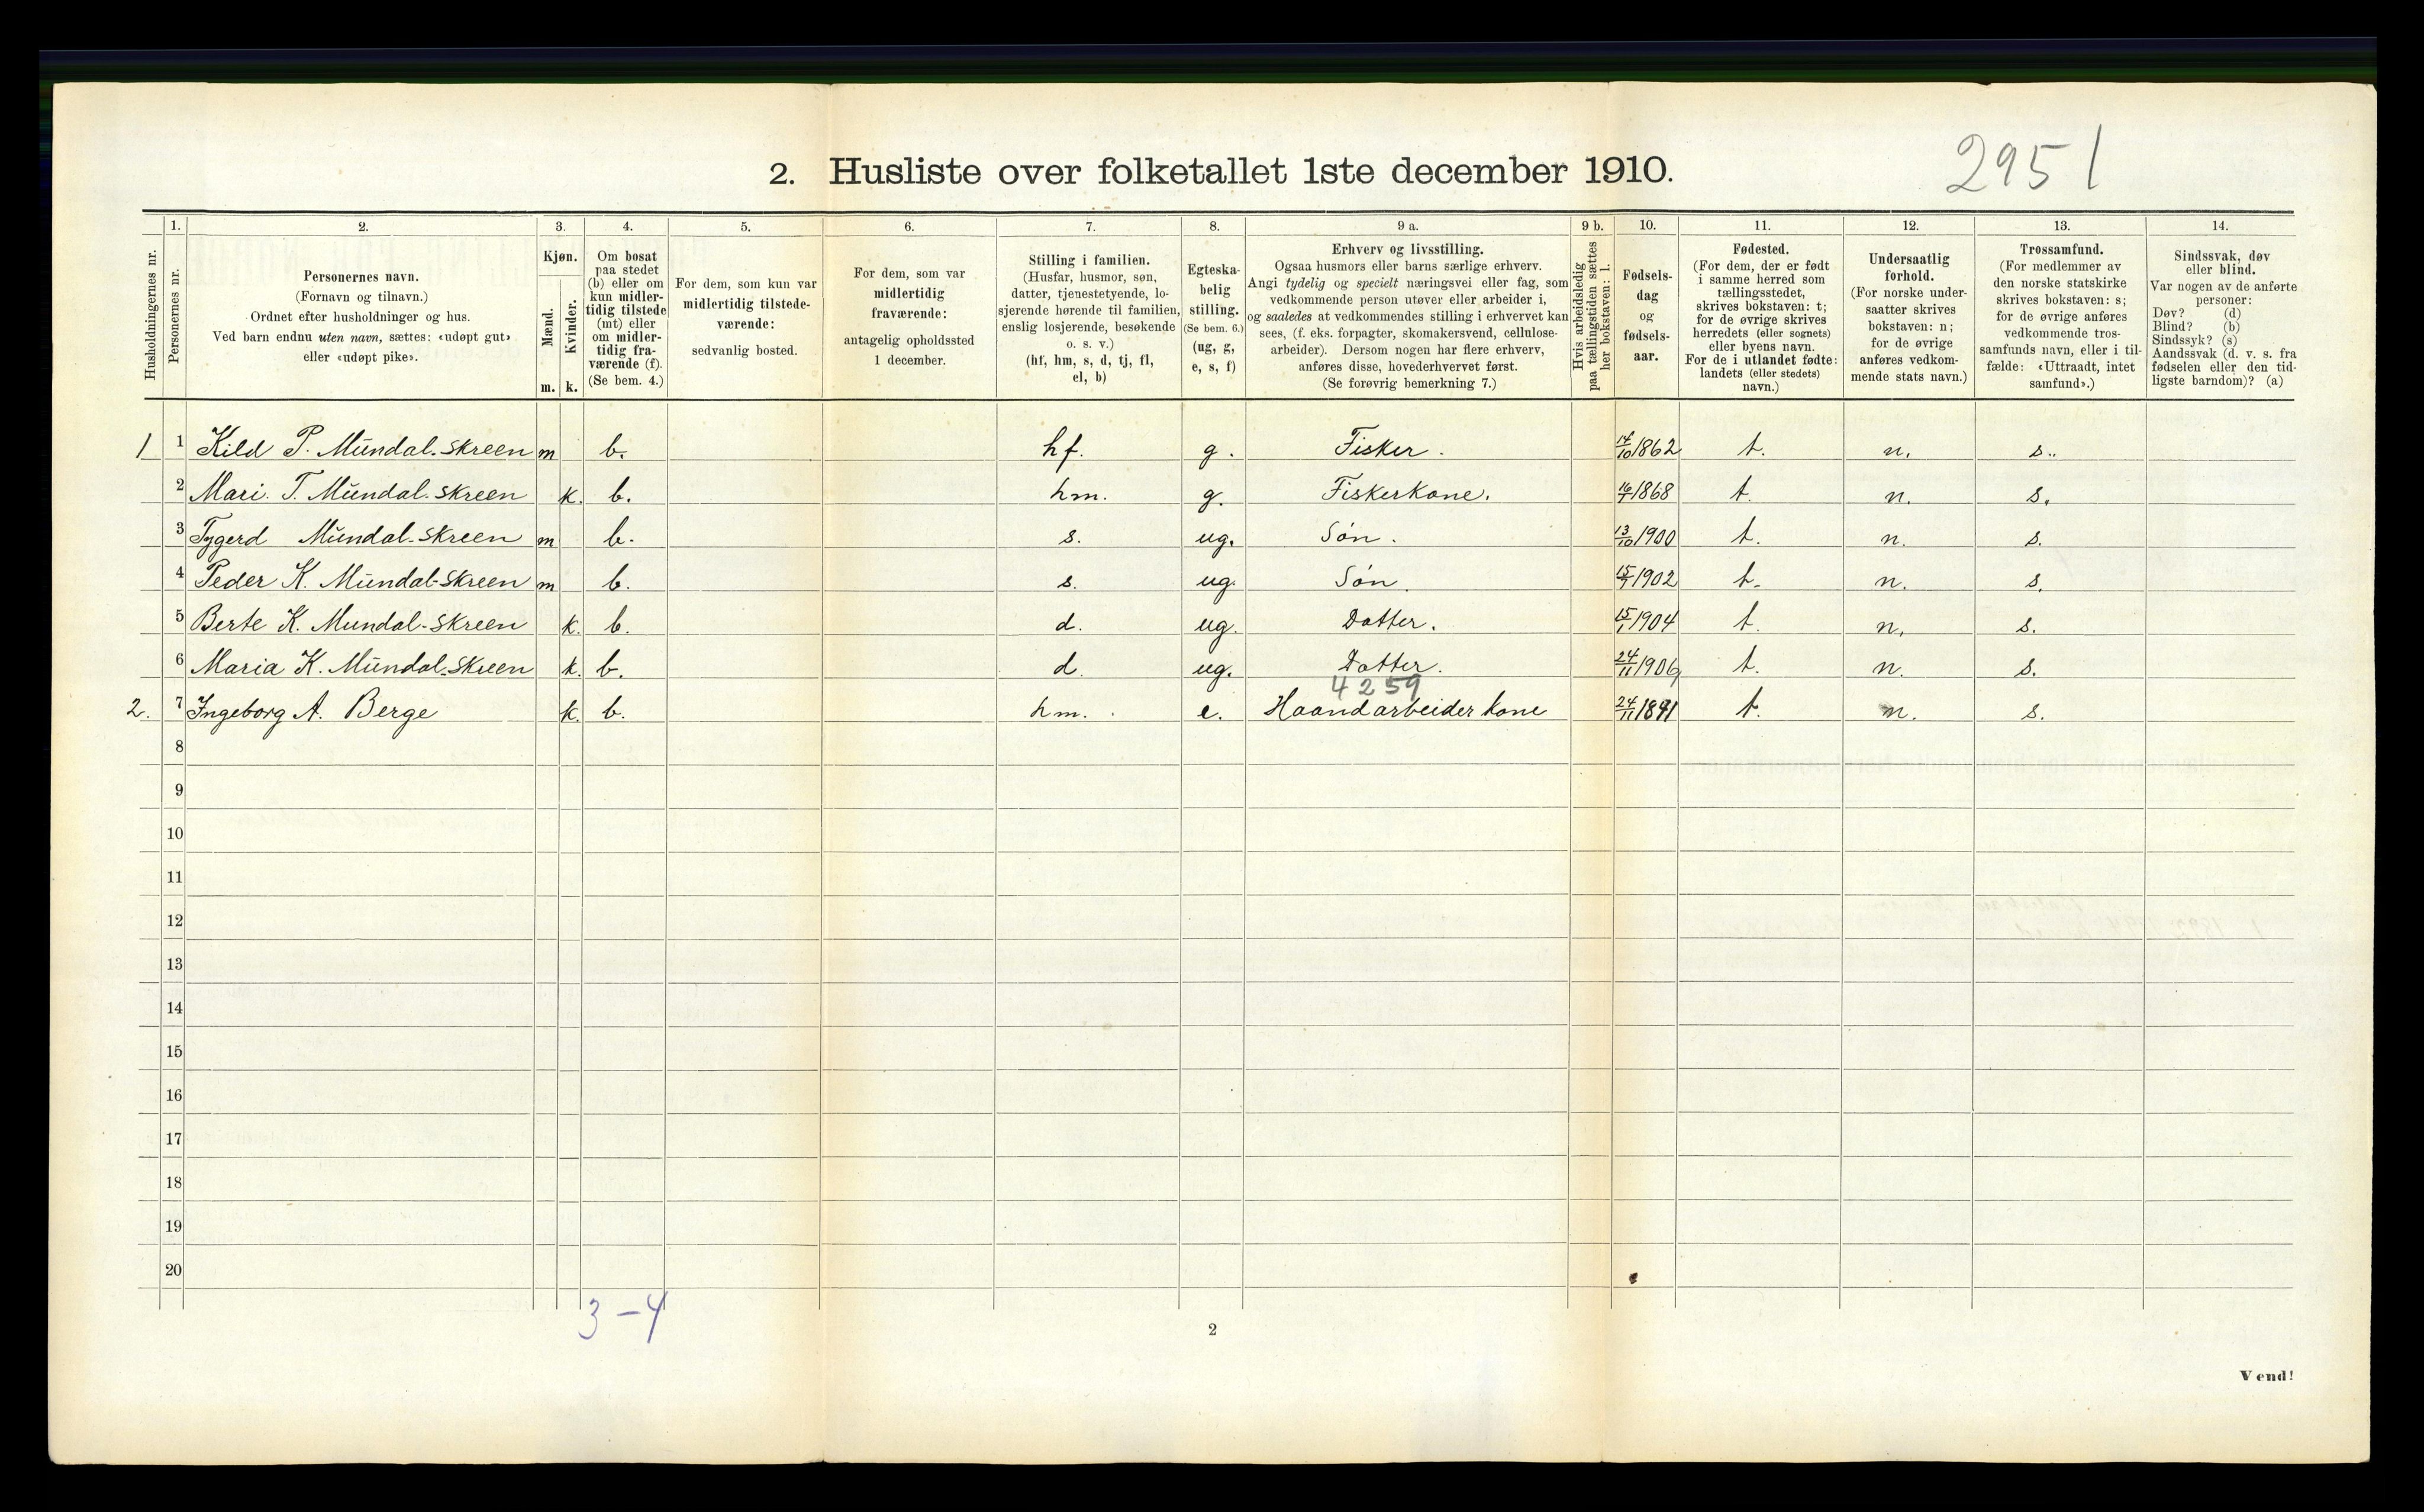 2951
2. Husliste over folketallet 1ste december 1910.
Husholdningernes nr. 1. Personernes nr. 2. Personernes navn. (Fornavn og tilnavn.) Ordnet efter husholdninger og hus. Ved barn endnu uten navn, sættes: «udøpt gut» eller «udøpt pike».
3. Kjøn. Mænd. m. Kvinder. k.
4. Om bosat paa stedet (b) eller om kun midlertidig tilstede (mt) eller om midlertidig fraværende (f). (Se bem. 4.)
5. For dem, som kun var midlertidig tilstedeværende: sedvanlig bosted.
6. For dem, som var midlertidig fraværende: antagelig opholdssted 1 december.
7. Stilling i familien. (Husfar, husmor, søn, datter, tjenestetyende, losjerende hørende til familien, enslig losjerende, besøkende o. s. v.) (hf, hm, s, d, tj, fl, el, b)
8. Egteskabelig stilling. (Se bem. 6.) (ug, g, e, s, f)
9 a. Erhverv og livsstilling. Ogsaa husmors eller barns særlige erhverv. Angi tydelig og specielt næringsvei eller fag, som vedkommende person utøver eller arbeider i, og saaledes at vedkommendes stilling i erhvervet kan sees, (f. eks. forpagter, skomakersvend, cellulosearbeider). Dersom nogen har flere erhverv, anføres disse, hovederhvervet først. (Se forøvrig bemerkning 7.)
9 b. Hvis arbeidsledig paa tællingstiden sættes her bokstaven: l.
10. Fødselsdag og fødselsaar.
11. Fødested. (For dem, der er født i samme herred som tællingsstedet, skrives bokstaven: t; for de øvrige skrives herredets (eller sognets) eller byens navn. For de i utlandet fødte: landets (eller stedets) navn.)
12. Undersaatlig forhold. (For norske undersaatter skrives bokstaven: n; for de øvrige anføres vedkommende stats navn.)
13. Trossamfund. (For medlemmer av den norske statskirke skrives bokstaven: s; for de øvrige anføres vedkommende trossamfunds navn, eller i tilfælde: «Uttraadt, intet samfund».)
14. Sindssvak, døv eller blind. Var nogen av de anførte personer: Døv? (d) Blind? (b) Sindssyk? (s) Aandssvak (d. v. s. fra fødselen eller den tidligste barndom)? (a)
1 1 Kild P. Mündal-Skreen m b. hf. g. Fisker. 14/10 1862 t. n. s.
2 Mari T. Mündal-Skreen k. b. hm. g. Fiskerkone. 1868 t. n. s.
3 Tygerd Mündal-Skreen m b. s. ug. Søn. 13/10 1900 t. n. s.
4 Peder K. Mündal-Skreen m b. s. ug. Søn. 1902 t. n. s.
5 Berte K. Mundal-Skreen k. b. d. ug. Datter. 15/1 1904 t. n. s.
6 Maria K. Mündal-Skreen k. b. d. ug. Datter. 24/11 1906 t. n. s.
4259
2. 7 Ingeborg A. Berge k. b. hm. e. Haandarbeider kone 24/11 t. n. s.
8
9
10
11
12
13
14
15
16
17
18
19
20
3-4
2
Vend!